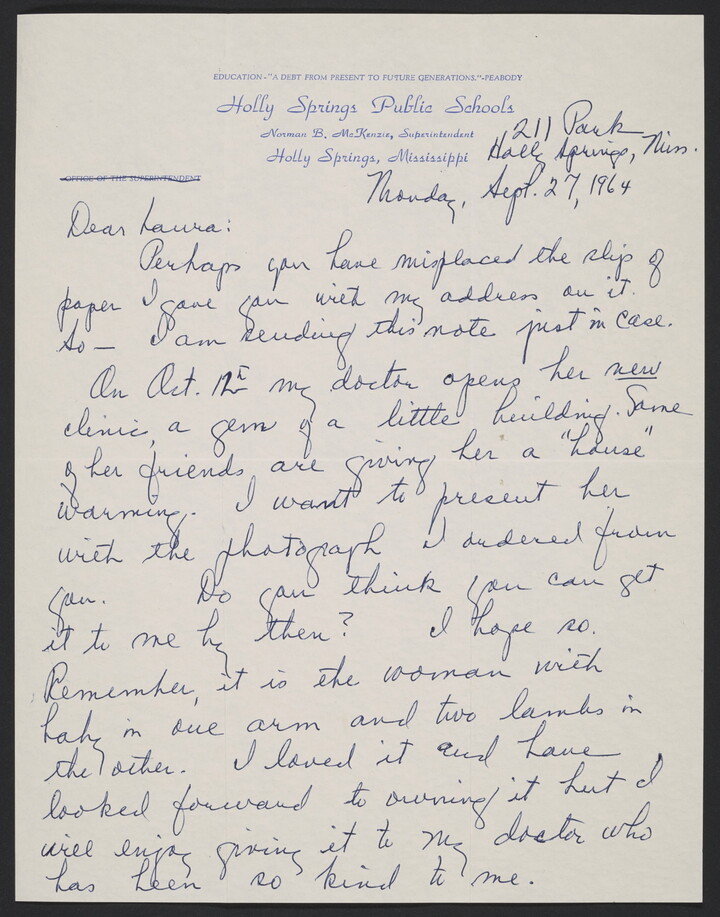 EDUCATION-"A DEBT FROM PRESENT TO FUTURE GENERATIONS."-PEABODY
Holly Springs Public Schools
Norman B. McKenzie, Superintendent
Holly Springs, Mississippi
OFFICE OF THE SUPERINTENDENT
211 Park
Holly Springs, Miss.
Monday, Sept. 27, 1964
Dear Laura:
Perhaps you have misplaced the slip of
paper I gave you with my address on it.
So— I am sending this note just in case.
On Oct. 12th my doctor opens her new
clinic, a gem of a little building. Some
of her friends are giving her a "house"
warming. I want to present her
with the photograph I ordered from
you. Do you think you can get
it to me by then? I hope so.
Remember, it is the woman with
baby in one arm and two lambs in
the other. I loved it and have
looked forward to owning it but I
will enjoy giving it to my doctor who
has been so kind to me.